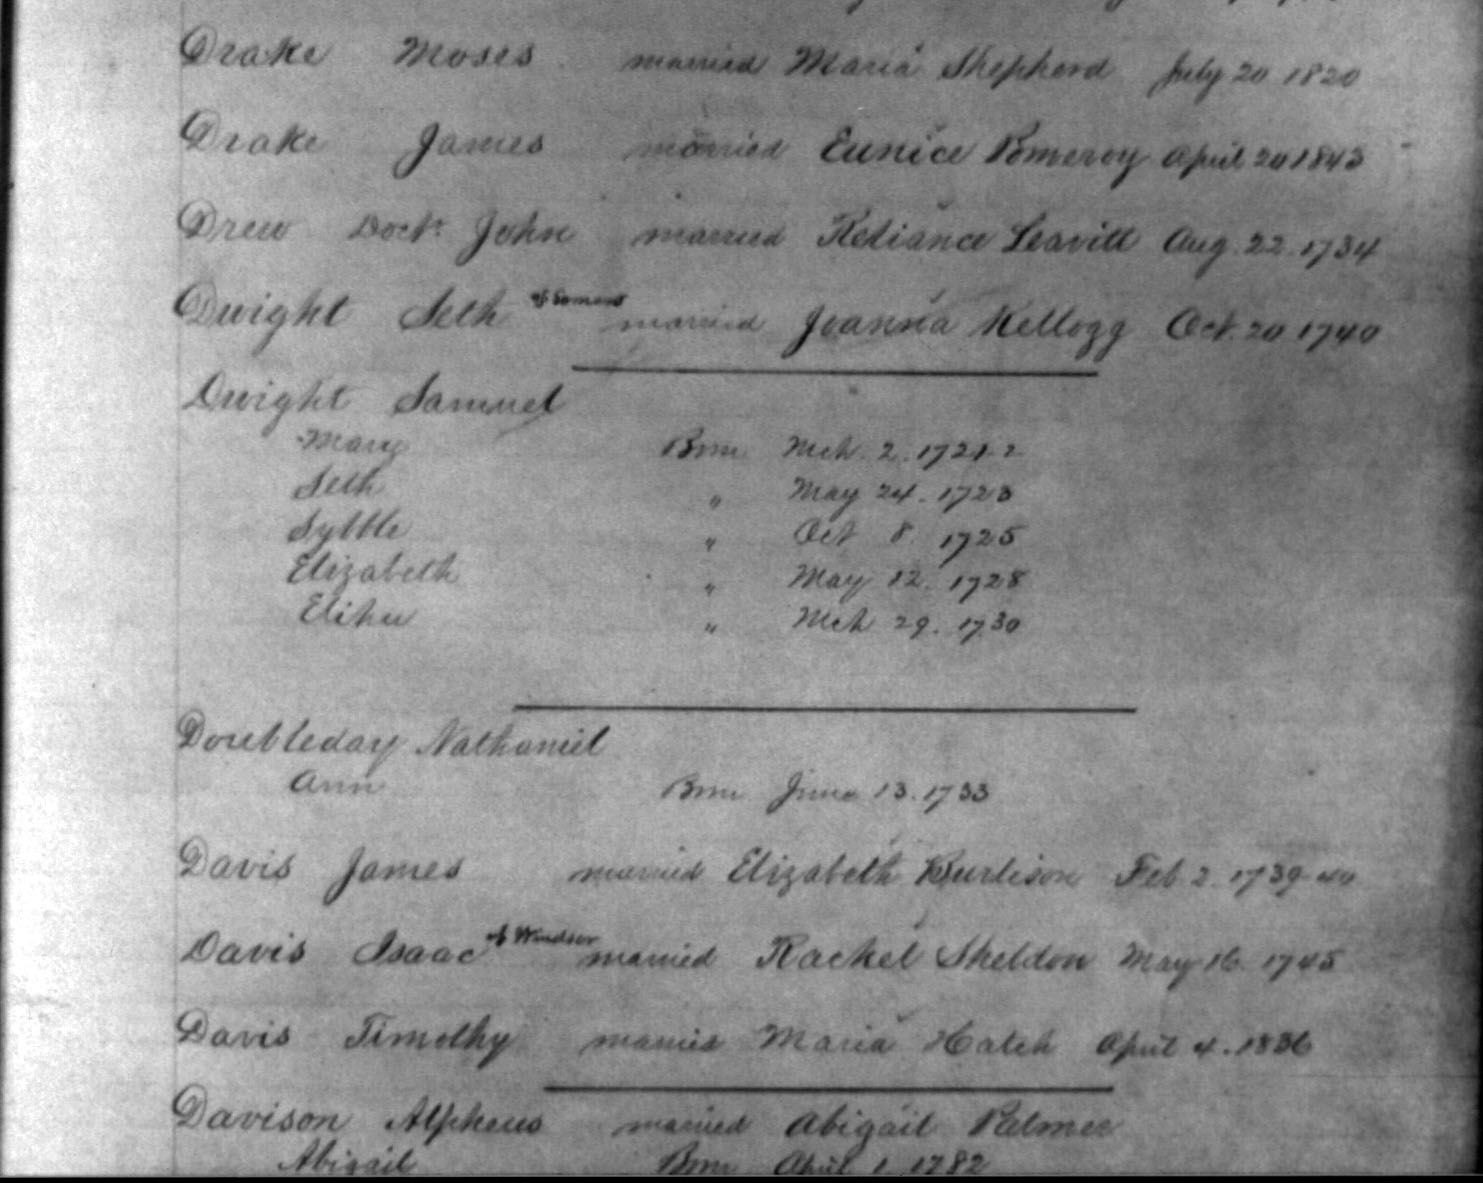 Drake Moses married Maria Shepherd July 20 1820
Drake James married Eunice Pomeroy April 20 1843
Drew Doct. John married Reliance Leavitt Aug. 22. 1734
Dwight Seth of Somers married Joanna Kellogg Oct. 20 1740
Dwight Samuel
Mary Born Mch. 2. 1721-2
Seth " May 24. 1723
Sybble " Oct 8 1725
Elizabeth " May 12. 1728
Elihu " Mch 29. 1730
Doubleday Nathaniel
Ann Born June 13. 1733
Davis James married Elizabeth Burlison Feb. 2. 1739-40
Davis Isaac of Windsor married Rachel Sheldon May 16. 1745
Davis Timothy married Maria Hatch April 4. 1836
Davison Alpheus married Abigail Palmer
Abigail Born April 1. 1782